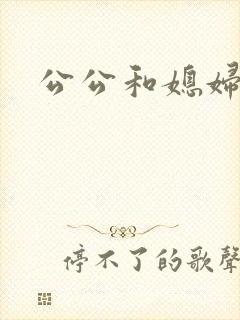 公公和媳婦
停不了的歌聲